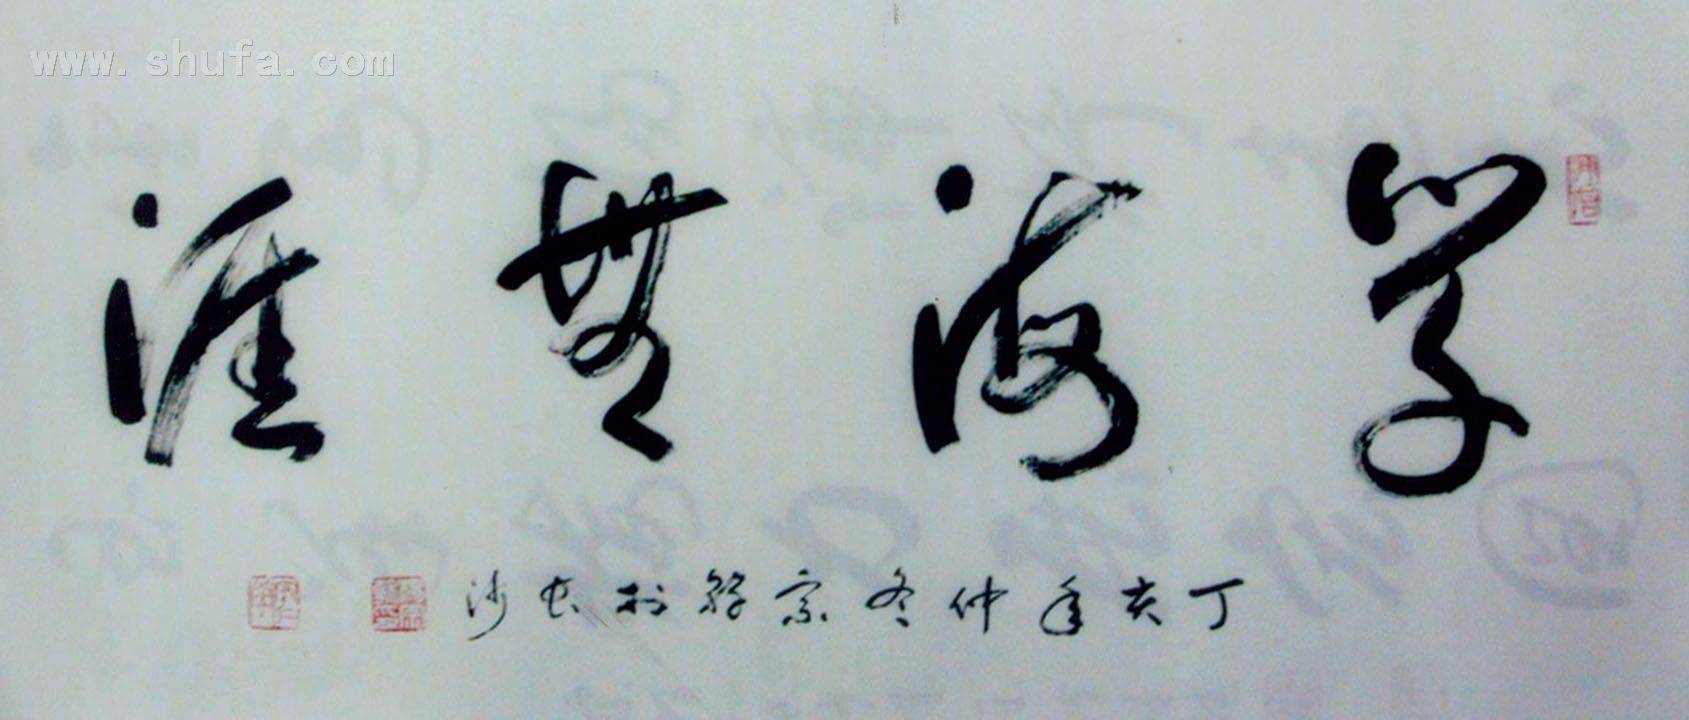 www.shufa.com
学海無涯
丁亥年仲冬宗於長沙